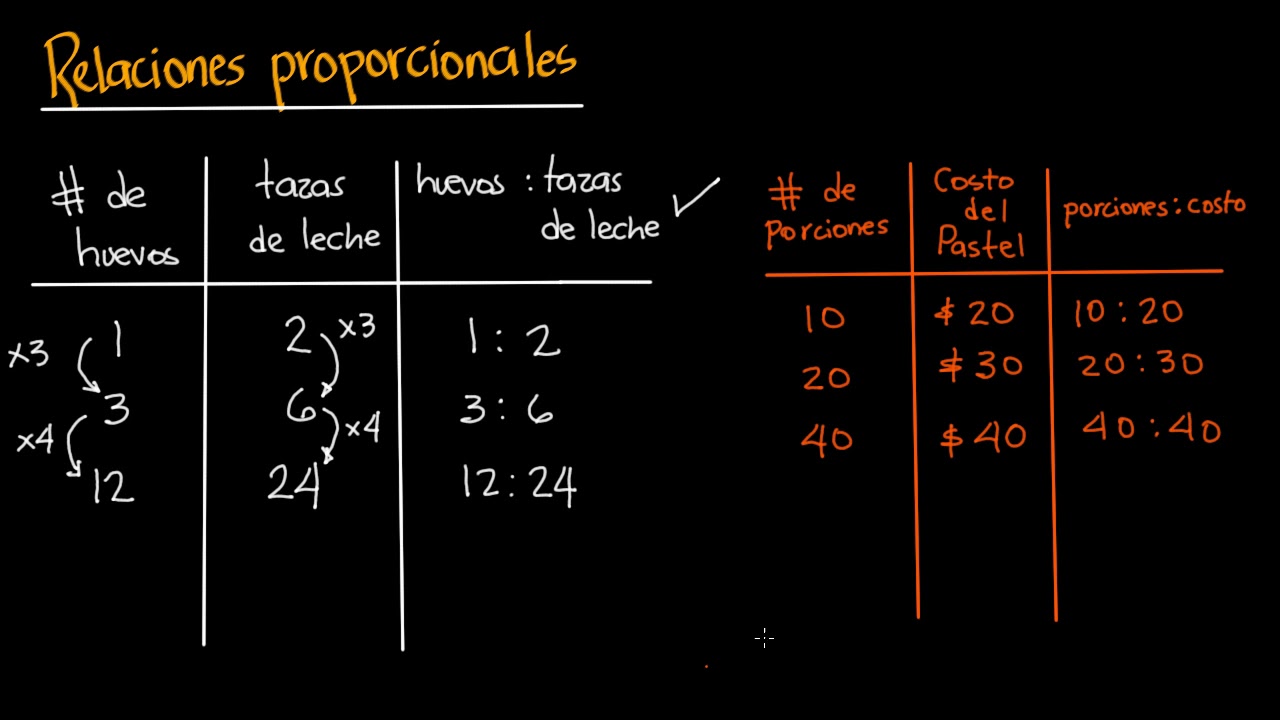 Relaciones proporcionales
# de huevos
tazas de leche
huevos : tazas de leche
x3
1
2
x3
1 : 2
3
6
3 : 6
x4
x4
12
24
12 : 24
# de Porciones
Costo del Pastel
porciones : costo
10
$ 20
10 : 20
20
$ 30
20 : 30
40
$ 40
40 : 40